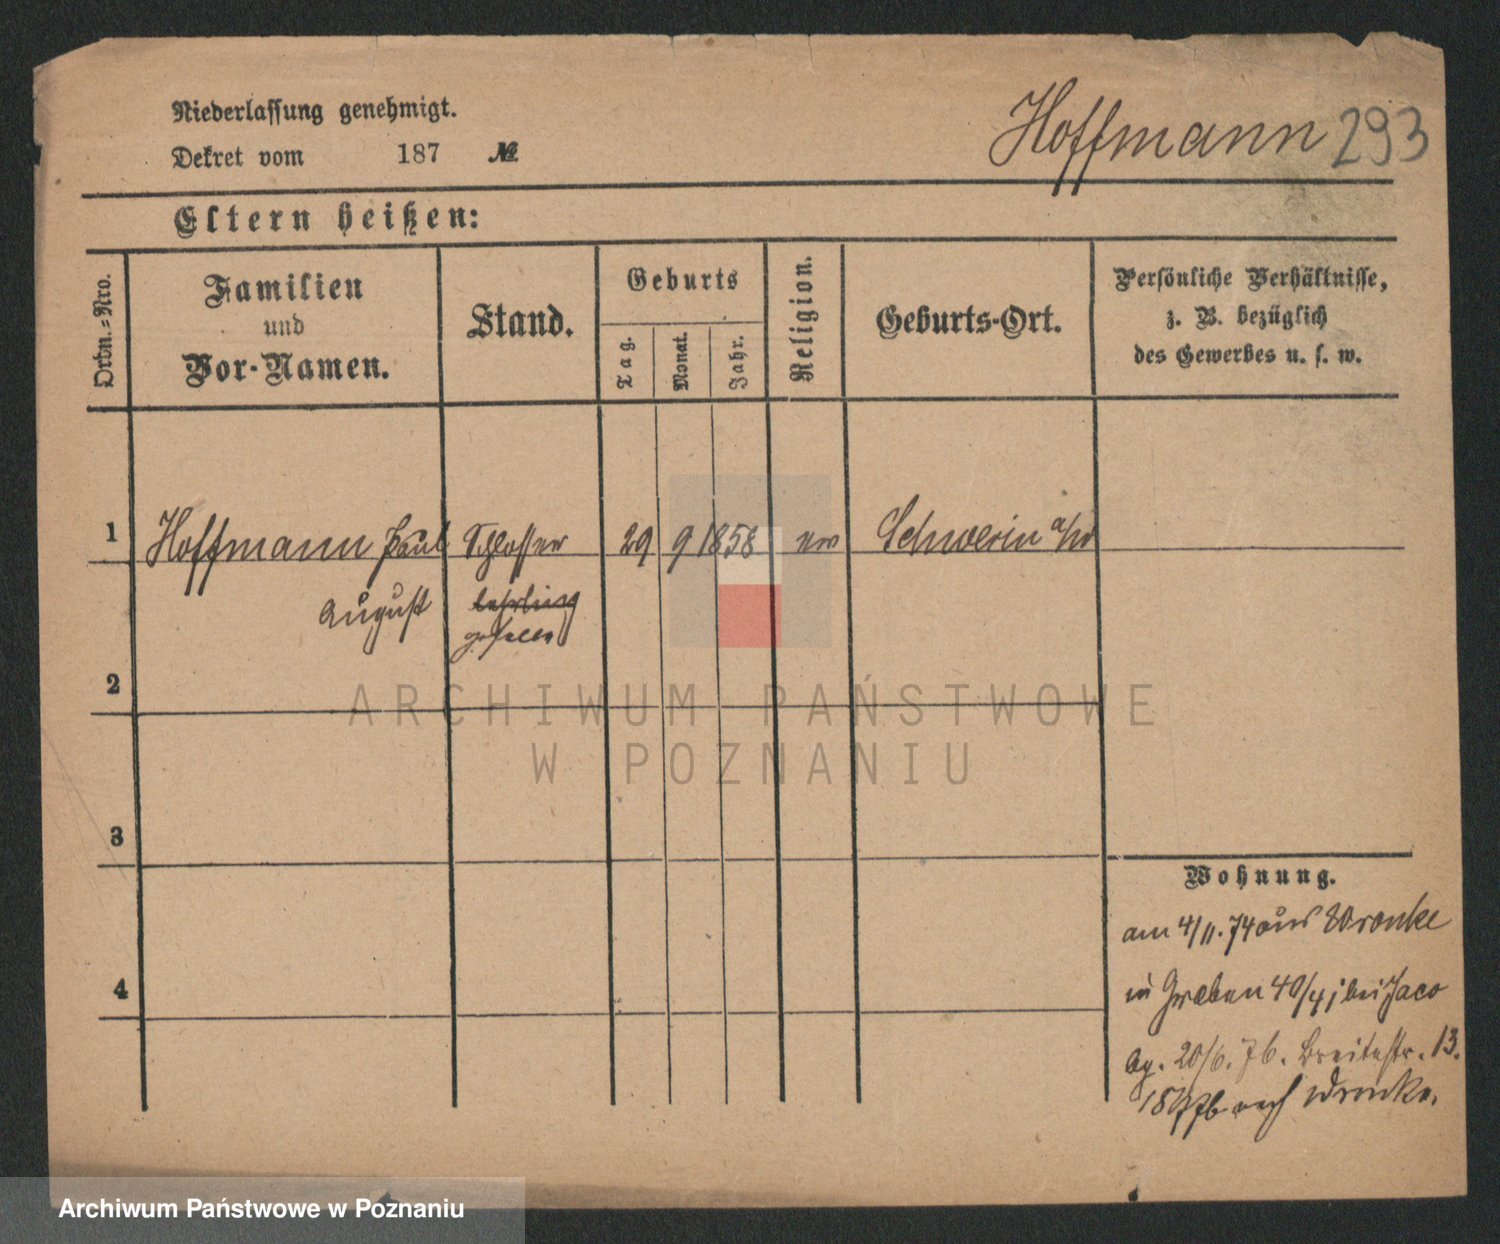 Niederlassung genehmigt.
Dekret vom 187 №
Hoffmann 293
Eltern heißen:
Ordn.-Nro.
Familien
und
Vor-Namen.
Stand.
Geburts
Tag.
Monat.
Jahr.
Religion.
Geburts-Ort.
Persönliche Verhältnisse,
z. B. bezüglich
des Gewerbes u. s. w.
1 Hoffmann Paul Schlosser 29 9 1858 ev Schwerin a/W
August lehrling
geselle
2
3
4
Wohnung.
am 4/11. 74 aus Wronke
in Graben 40/41 bei Jaco
by. 20/6. 76. Breitestr. 13.
nach Wronke.
ARCHIWUM PAŃSTWOWE
W POZNANIU
Archiwum Państwowe w Poznaniu